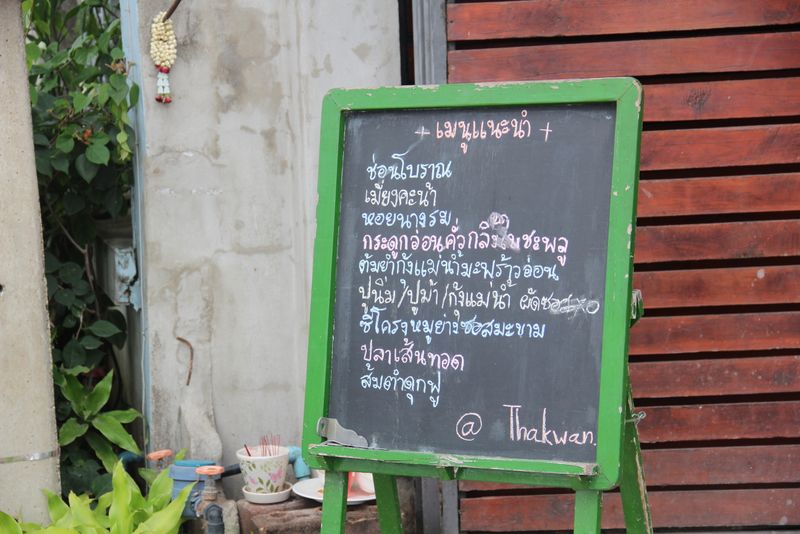 + เมนูแนะนำ +
ช่อนโบราณ
เมี่ยงคะน้า
หอยนางรม
กระดูกอ่อนคั่วกลิ้งใบชะพลู
ต้มยำกุ้งแม่น้ำมะพร้าวอ่อน
ปูนิ่ม/ปูม้า/กุ้งแม่น้ำ ผัดซอส
ซี่โครงหมูย่างซอสมะขาม
ปลาเส้นทอด
ส้มตำดุกฟู
@ Thakwan.